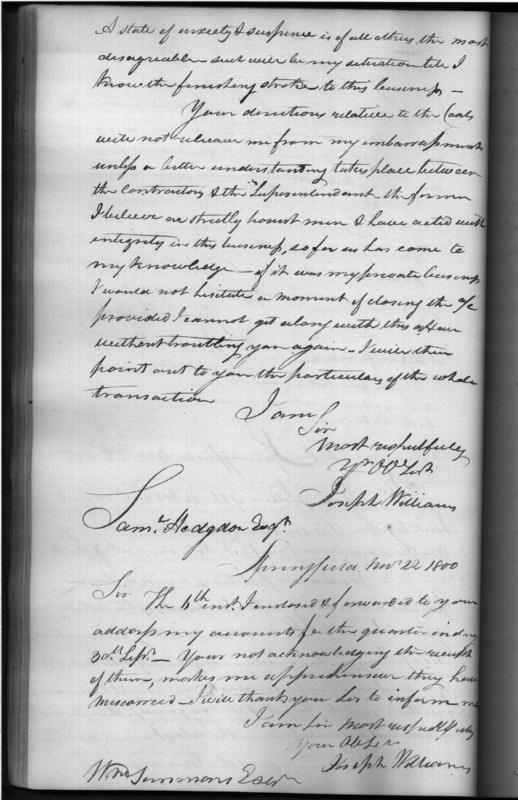 A state of anxiety & suspence is of all others the most
disagreable – such will be my situation till I
know the finishing stroke to this business –
Your directions relative to the Coals
will not releave me from my embarrassments
unless a better understanding takes place between
the contractors & the Superintendant the former
I believe are strictly honest men & have acted with
integrity in this business, so far as has come to
my knowledge – if it was my private business
I would not hisitate a moment of closing the a/c
provided I cannot get along with this affair
without troubling you again – I will then
point out to you the particulars of the whole
transaction
I am
Sir
most respectfully
Yr Ob Sert
Joseph Williams
Saml Hodgdon Esqr
Springfield Novr 22 1800
Sir The 11th inst I enclosed & forwarded to your
address my accounts for the quarter ending
30th Sepr – Your not acknowledging the receipt
of them, makes me apprehensive they have
miscarried – I will thank you Sir to inform me
I am Sir most respectfully
Your Ob Ser
Joseph Williams
Wm Simmons Esqr